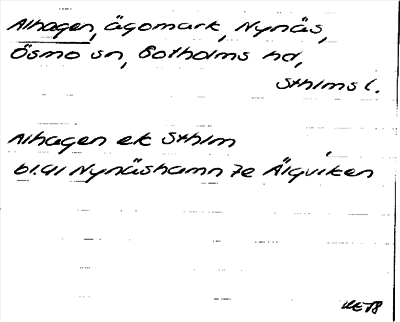 Alhagen, ägomark, Nynäs,
Ösmo sn, Sotholms hd,
Sthlms l.
Alhagen ek Sthlm
bl. 91 Nynäshamn 7e Älgviken